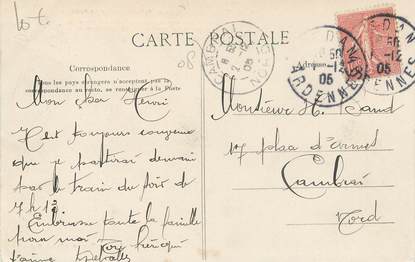 CARTE POSTALE
Correspondance
Tous les pays étrangers n'acceptent pas la
correspondance au recto, se renseigner à la Poste
Adresse
SEDAN
ARDENNES
05
CAMBRAI
08
Mon cher Henri
C'est toujours convenu
que je partirai demain
par le train du soir de
7 h 12
Embrasse toute la famille
pour moi
t'aime
Monsieur H. Sand
17 place d'armes
Cambrai
Nord